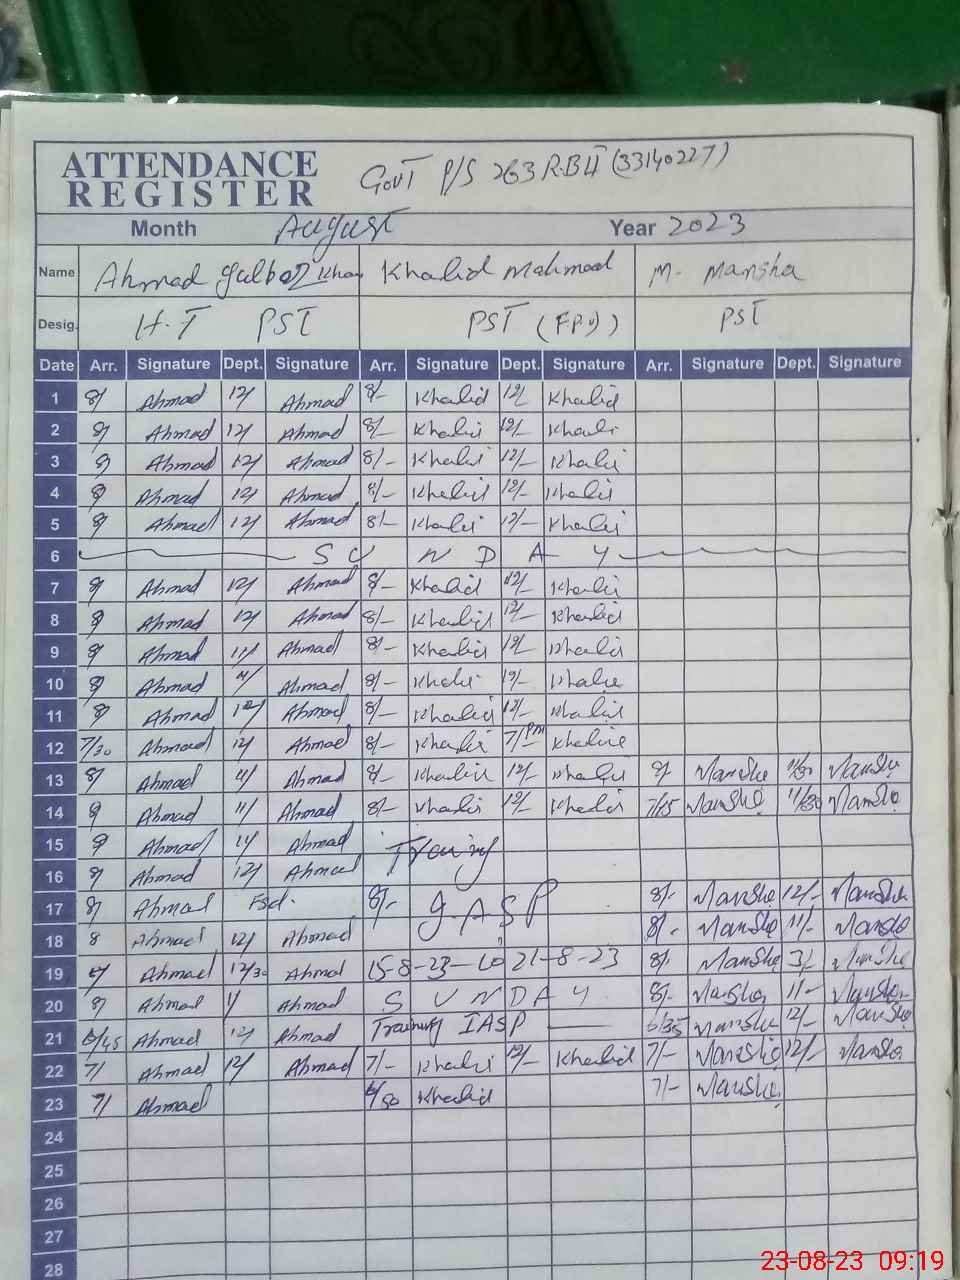 ATTENDANCE REGISTER GOVT P/S 263 R.B II (33140227)
Month August Year 2023
Name Ahmad Gulbaz Khan Khalid Mahmood M. Mansha
Desig. H.T PST PST PST
Date Arr. Signature Dept. Signature Arr. Signature Dept. Signature Arr. Signature Dept. Signature
1 8/ Ahmad 12/ Ahmad 8/- Khalid 12/ Khalid
2 8/ Ahmad 12/ Ahmad 8/- Khalid 12/- Khali
3 8/ Ahmad 12/ Ahmad 8/- Khalid 12/- Khalid
4 8/ Ahmad 12/ Ahmad 8/- Khalid 12/- Khalid
5 8/ Ahmad 12/ Ahmad 8/- Khalid 12/- Khalid
6 SUNDAY
7 8/ Ahmad 12/ Ahmad 8/- Khalid 12/- Khalid
8 8/ Ahmad 12/ Ahmad 8/- Khalid 12/- Khalid
9 8/ Ahmad 11/ Ahmad 8/- Khalid 12/- Khalid
10 8/ Ahmad Ahmad 8/- Khalid 12/- Khalid
11 8/ Ahmad 12/ Ahmad 8/- Khalid 12/- Khalid
12 7/30 Ahmad 12/ Ahmad 8/- Khalid 7/- PM Khalid
13 8/ Ahmad 11/ Ahmad 8/- Khalid 12/- Khalid 8/ Mansha 11/30 Mansha
14 8/ Ahmad 11/ Ahmad 8/- Khalid 12/ Khalid 7/15 Mansha 11/30 Mansha
15 8/ Ahmad 11/ Ahmad Training
16 8/ Ahmad 12/ Ahmad
17 8/ Ahmad Fsd. 8/- I.A.S.P 8/- Mansha 12/- Mansha
18 8 Ahmad 12/ Ahmad 8/- Mansha 11/- Mansha
19 Ahmad 12/30 Ahmad 15-8-23 to 21-8-23 8/- Mansha 3/- Mansha
20 8/ Ahmad 1/ Ahmad SUNDAY 8/- Mansha 11- Mansha
21 6/45 Ahmad 12/ Ahmad Training IASP 6/35 Mansha 12/- Mansha
22 7/ Ahmad 12/ Ahmad 7/- Khalid 12/- Khalid 7/- Mansha 12/- Mansha
23 7/ Ahmad 6/50 Khalid 7/- Mansha
24
25
26
27
28
23-08-23 09:19